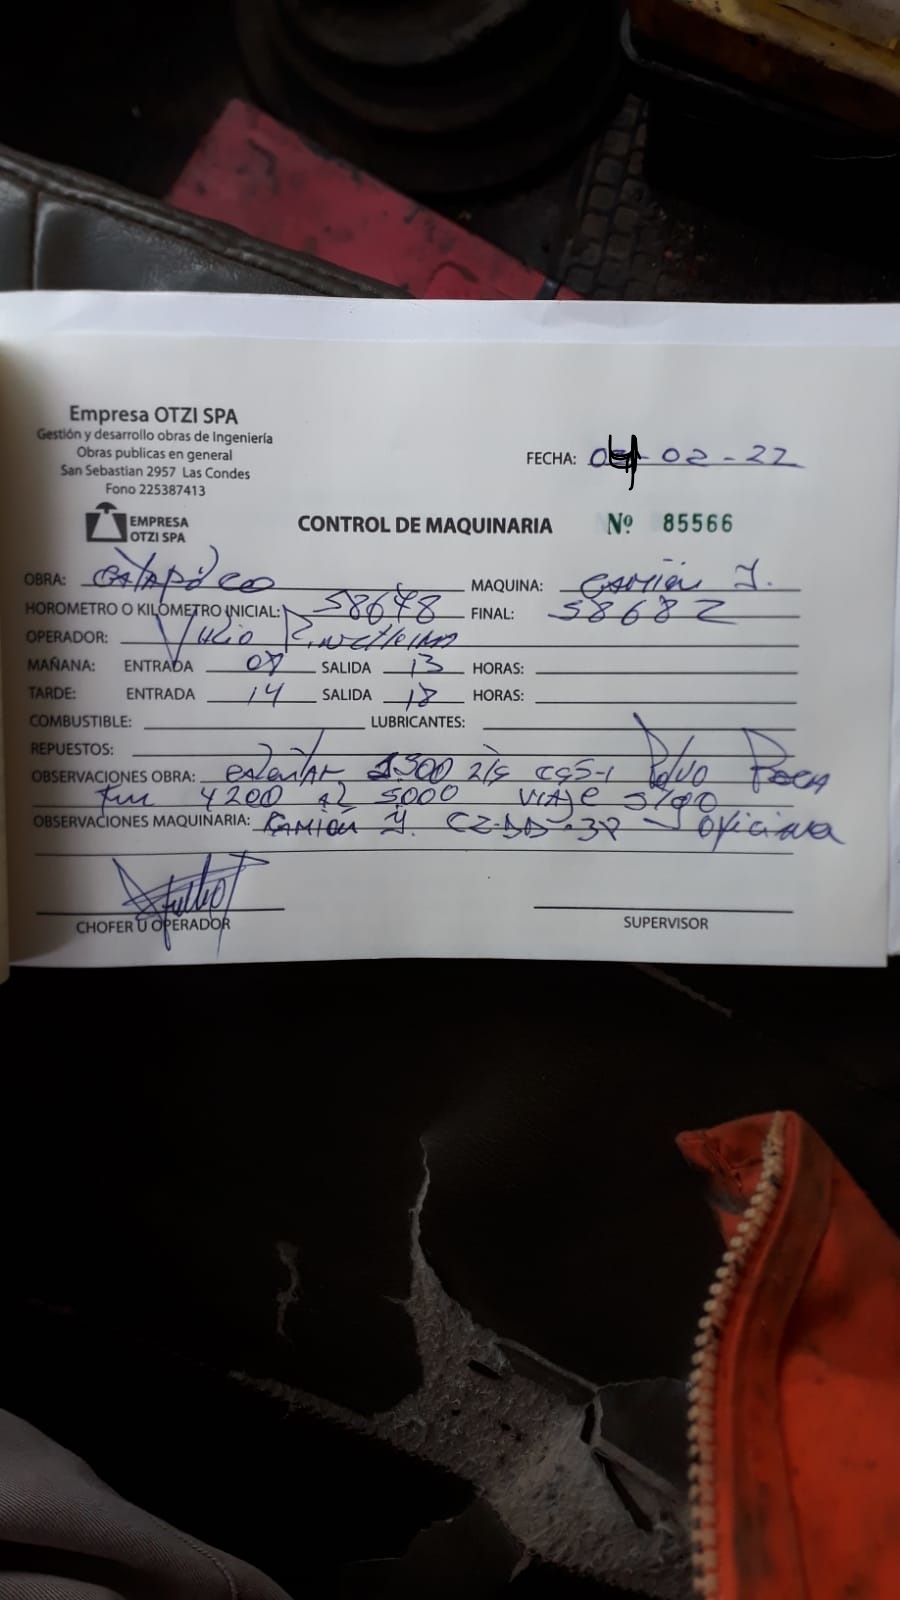 Empresa OTZI SPA
Gestión y desarrollo obras de Ingeniería
Obras publicas en general
San Sebastian 2957 Las Condes
Fono 225387413
FECHA: 04-02-22
EMPRESA
OTZI SPA
CONTROL DE MAQUINARIA
Nº 85566
OBRA: CATAPILCO MAQUINA: CAMIÓN J.
HOROMETRO O KILOMETRO INICIAL: 58648 FINAL: 58682
OPERADOR: Julio
MAÑANA: ENTRADA 08 SALIDA 13 HORAS:
TARDE: ENTRADA 14 SALIDA 18 HORAS:
COMBUSTIBLE: LUBRICANTES:
REPUESTOS:
OBSERVACIONES OBRA: 1.500 Polvo ROCA
Km 4200 AL 5000 VIAJE
OBSERVACIONES MAQUINARIA: CAMIÓN J. OFICINA
CHOFER U OPERADOR
SUPERVISOR